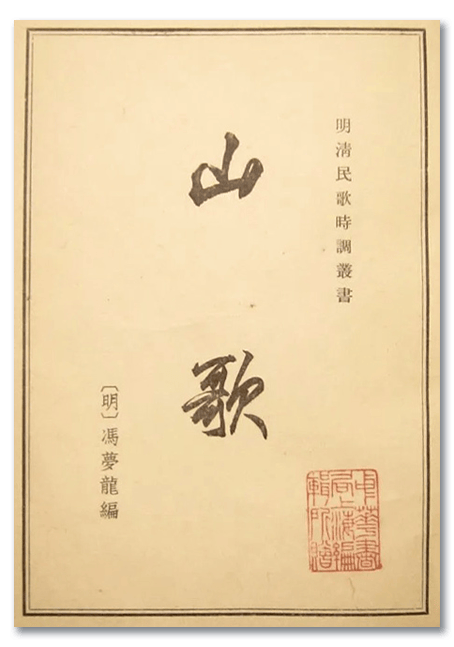 明清民歌時調叢書
山歌
〔明〕馮夢龍編
中華書
局上海編
輯所贈